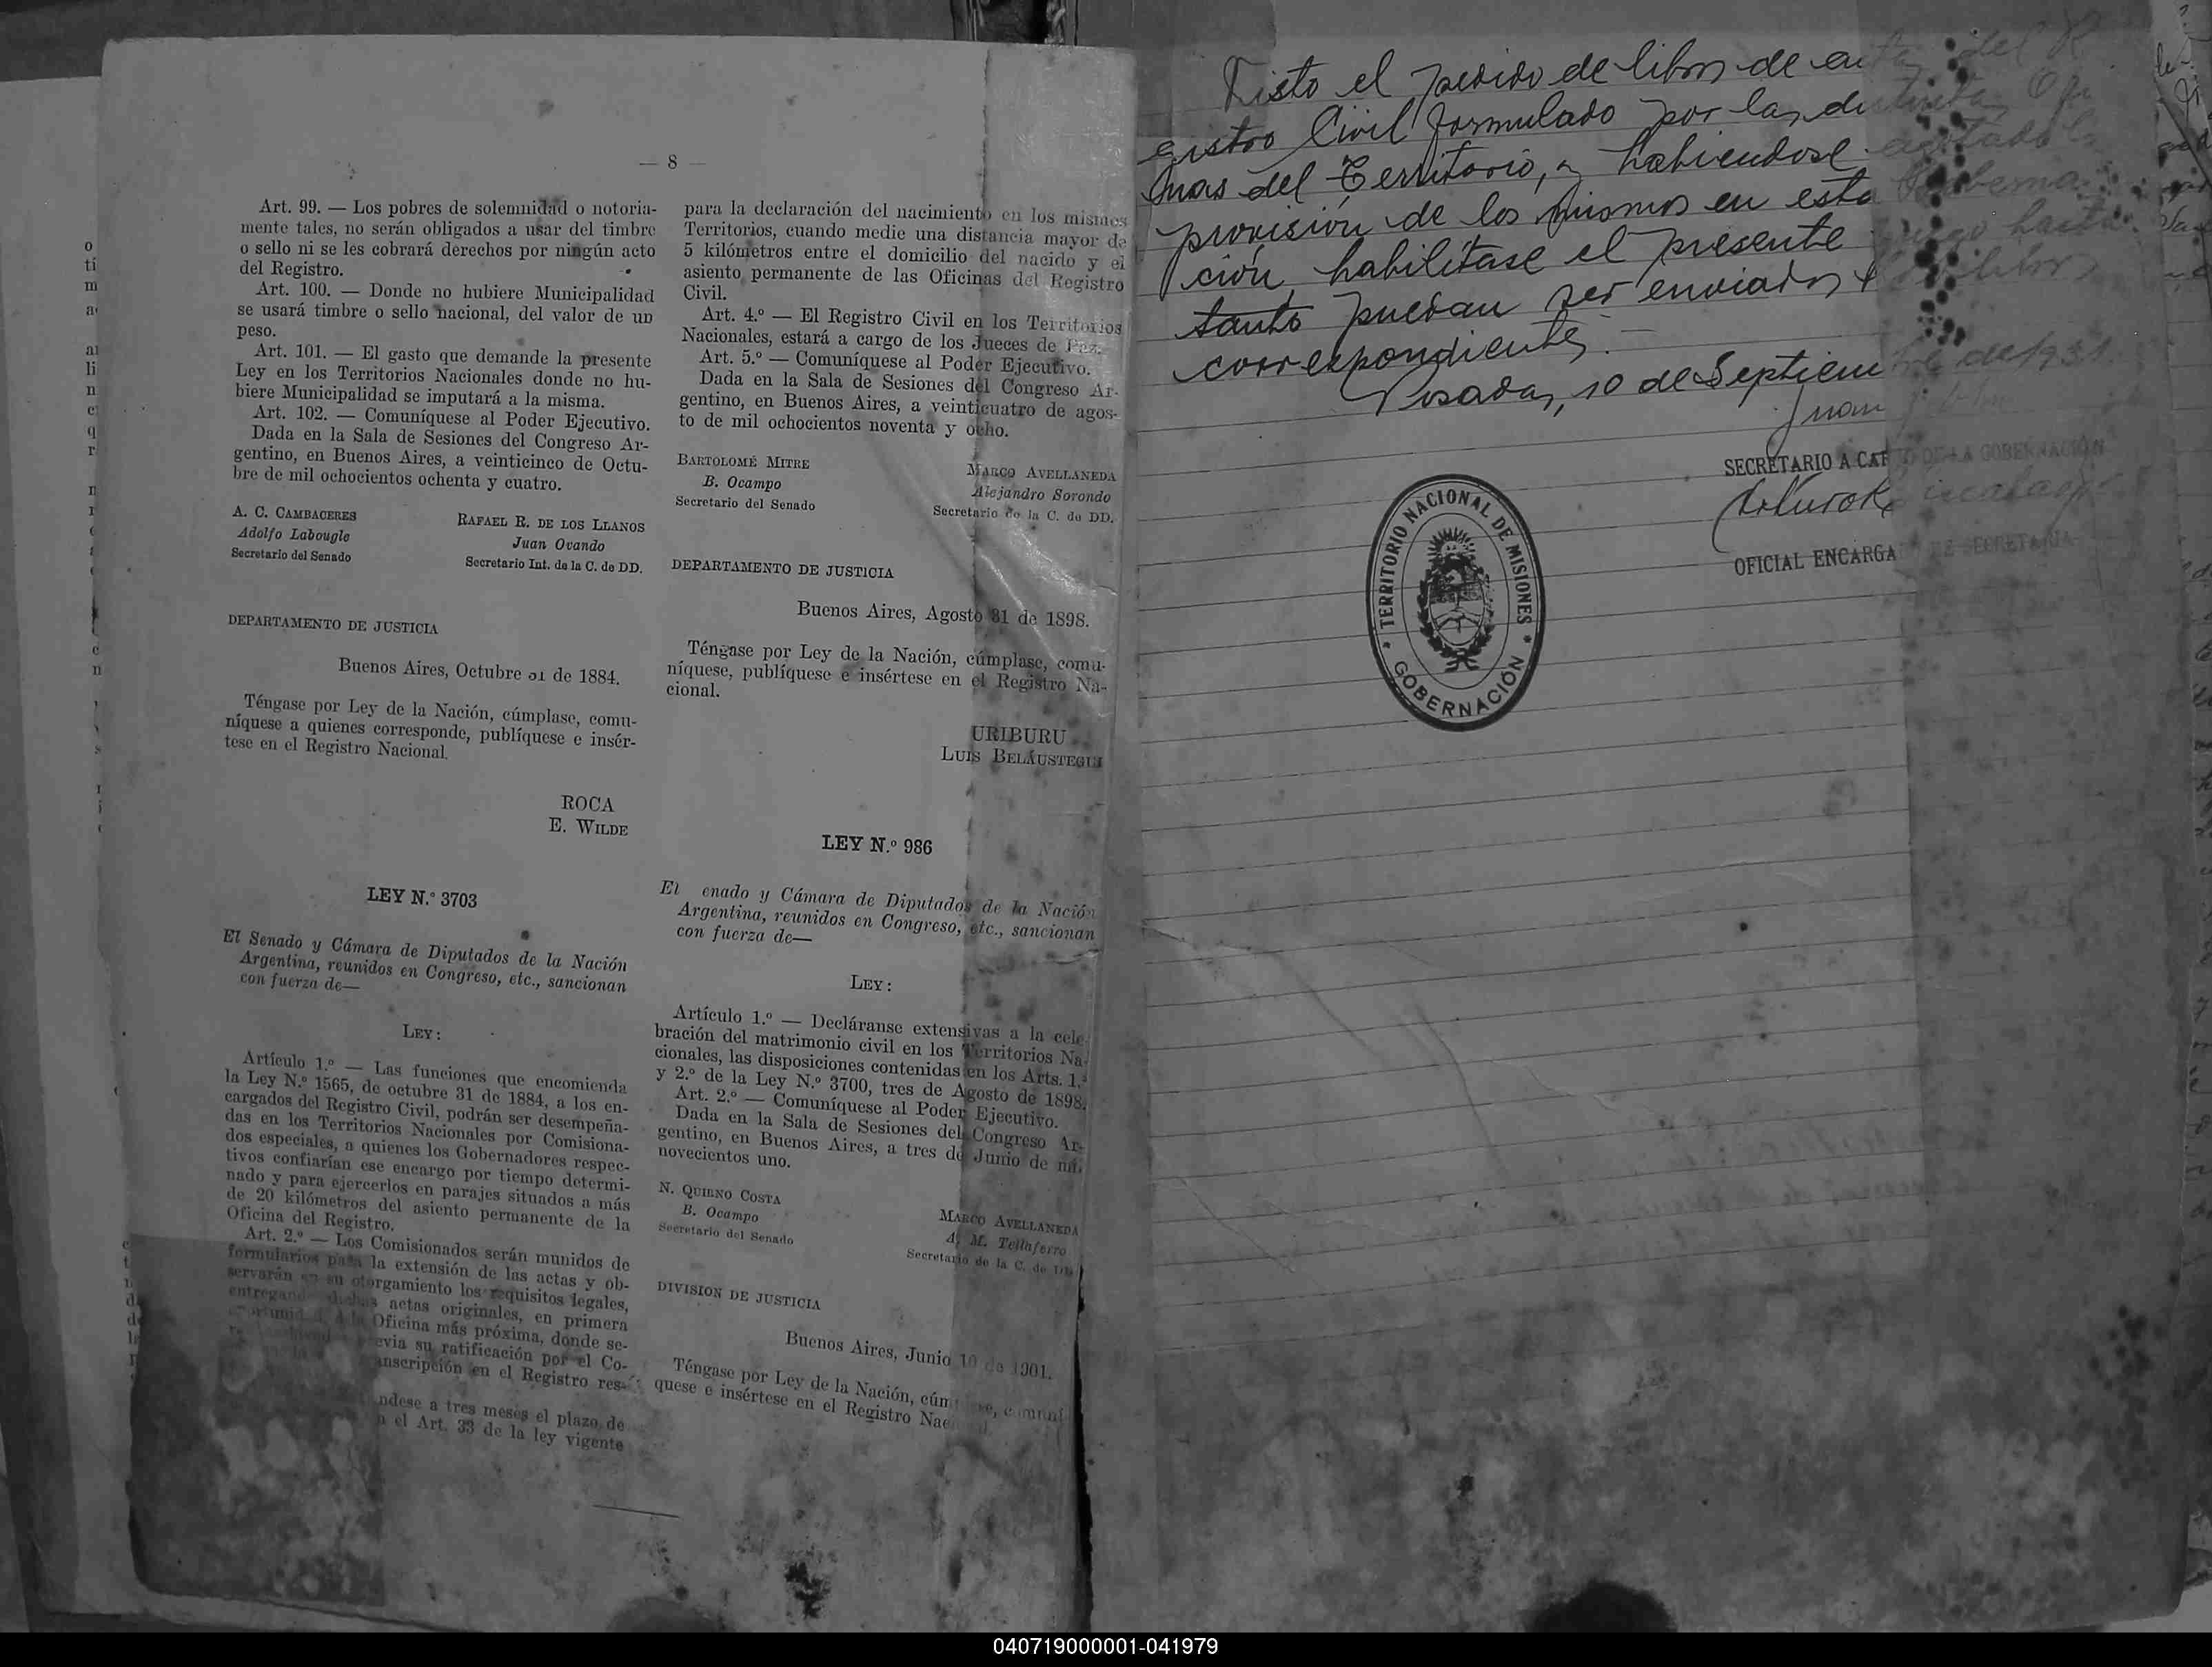 — 8 —
Art. 99. — Los pobres de solemnidad o notoria-
mente tales, no serán obligados a usar del timbre
o sello ni se les cobrará derechos por ningún acto
del Registro.
Art. 100. — Donde no hubiere Municipalidad
se usará timbre o sello nacional, del valor de un
peso.
Art. 101. — El gasto que demande la presente
Ley en los Territorios Nacionales donde no hu-
biere Municipalidad se imputará a la misma.
Art. 102. — Comuníquese al Poder Ejecutivo.
Dada en la Sala de Sesiones del Congreso Ar-
gentino, en Buenos Aires, a veinticinco de Octu-
bre de mil ochocientos ochenta y cuatro.
A. C. CAMBACERES
Adolfo Labougle
Secretario del Senado
RAFAEL R. DE LOS LLANOS
Juan Ovando
Secretario Int. de la C. de DD.
DEPARTAMENTO DE JUSTICIA
Buenos Aires, Octubre 31 de 1884.
Téngase por Ley de la Nación, cúmplase, comu-
níquese a quienes corresponde, publíquese e insér-
tese en el Registro Nacional.
ROCA
E. WILDE
LEY N.º 3703
El Senado y Cámara de Diputados de la Nación
Argentina, reunidos en Congreso, etc., sancionan
con fuerza de—
LEY:
Artículo 1.º — Las funciones que encomienda
la Ley N.º 1565, de octubre 31 de 1884, a los en-
cargados del Registro Civil, podrán ser desempeña-
das en los Territorios Nacionales por Comisiona-
dos especiales, a quienes los Gobernadores respec-
tivos confiarían ese encargo por tiempo determi-
nado y para ejercerlos en parajes situados a más
de 20 kilómetros del asiento permanente de la
Oficina del Registro.
Art. 2.º — Los Comisionados serán munidos de
formularios para la extensión de las actas y ob-
servarán en su otorgamiento los requisitos legales,
entregando dichas actas originales, en primera
Oficina más próxima, donde se-
previa su ratificación por el Co-
anscripción en el Registro res-
ndese a tres meses el plazo de
el Art. 33 de la ley vigente
para la declaración del nacimiento en los mismos
Territorios, cuando medie una distancia mayor de
5 kilómetros entre el domicilio del nacido y el
asiento permanente de las Oficinas del Registro
Civil.
Art. 4.º — El Registro Civil en los Territorios
Nacionales, estará a cargo de los Jueces de Paz.
Art. 5.º — Comuníquese al Poder Ejecutivo.
Dada en la Sala de Sesiones del Congreso Ar-
gentino, en Buenos Aires, a veinticuatro de agos-
to de mil ochocientos noventa y ocho.
BARTOLOMÉ MITRE
B. Ocampo
Secretario del Senado
MARCO AVELLANEDA
Alejandro Sorondo
Secretario de la C. de DD.
DEPARTAMENTO DE JUSTICIA
Buenos Aires, Agosto 31 de 1898.
Téngase por Ley de la Nación, cúmplase, comu-
níquese, publíquese e insértese en el Registro Na-
cional.
URIBURU
LUIS BELÁUSTEGUI
LEY N.º 986
El enado y Cámara de Diputados de la Nación
Argentina, reunidos en Congreso, etc., sancionan
con fuerza de—
LEY:
Artículo 1.º — Decláranse extensivas a la cele-
bración del matrimonio civil en los Territorios Na-
cionales, las disposiciones contenidas en los Arts. 1.º
y 2.º de la Ley N.º 3700, tres de Agosto de 1898.
Art. 2.º — Comuníquese al Poder Ejecutivo.
Dada en la Sala de Sesiones del Congreso Ar-
gentino, en Buenos Aires, a tres de Junio de mil
novecientos uno.
N. QUIRNO COSTA
B. Ocampo
Secretario del Senado
MARCO AVELLANEDA
A. M. Tallaferro
Secretario de la C. de DD
DIVISION DE JUSTICIA
Buenos Aires, Junio 10 de 1901.
Téngase por Ley de la Nación, cúmplase, comuní
quese e insértese en el Registro Nacional.
Visto el pedido de libros de actas del R
egistro Civil formulado por las distintas Ofi
cinas del Territorio, y habiéndose agotado la
provisión de los mismos en esta Goberna
ción, habilítase el presente hasta
tanto puedan ser enviados los libros
correspondientes.
Posadas, 10 de Septiembre de 1931
Juan
SECRETARIO A CARGO DE LA GOBERNACIÓN
OFICIAL ENCARGADO DE SECRETARIA
TERRITORIO NACIONAL DE MISIONES
GOBERNACIÓN
040719000001-041979